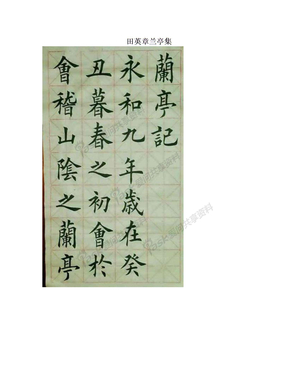 田英章兰亭集
蘭亭記
永和九年歲在癸
丑暮春之初會於
會稽山陰之蘭亭